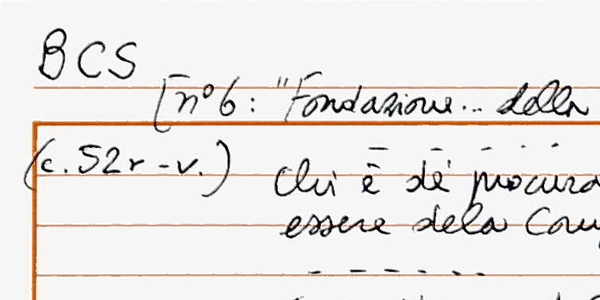 BCS
[n°6: "Fondazione... della
(c.52r-v.) Chi è dé procura
essere dela Com